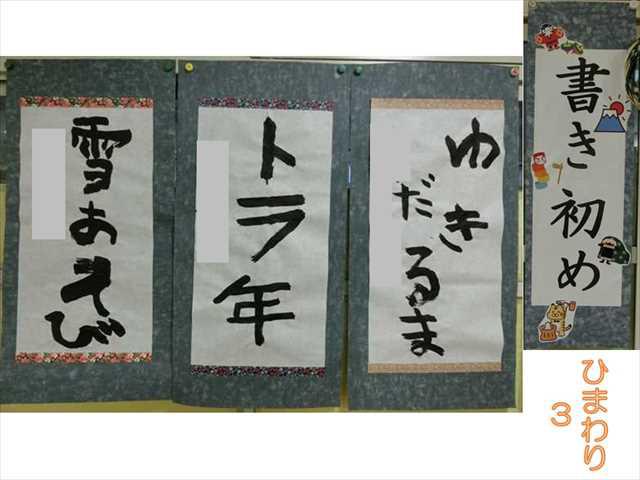 書き初め
ゆき
だるま
トラ年
雪あそび
ひまわり
3